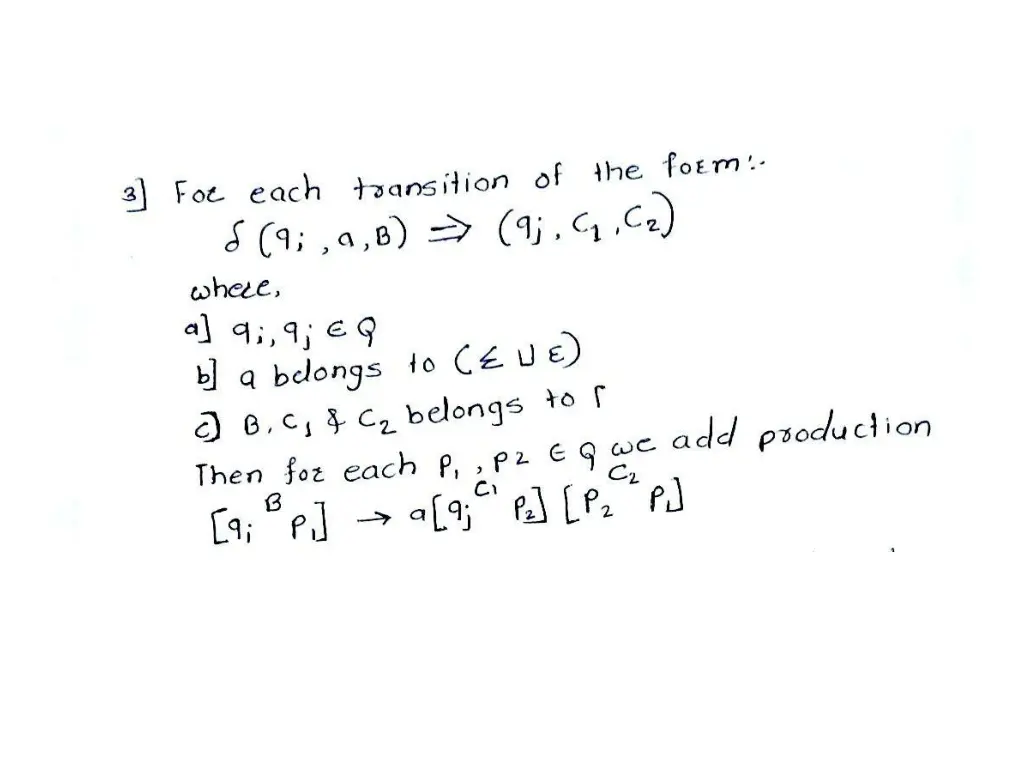 3] For each transition of the form:-
δ (qi , a, B) ⇒ (qj, C1, C2)
where,
a] qi, qj ∈ Q
b] a belongs to (Σ ∪ ε)
c] B, C1 & C2 belongs to Γ
Then for each P1, P2 ∈ Q we add production
[qi B P1] → a[qj C1 P2] [P2 C2 P1]